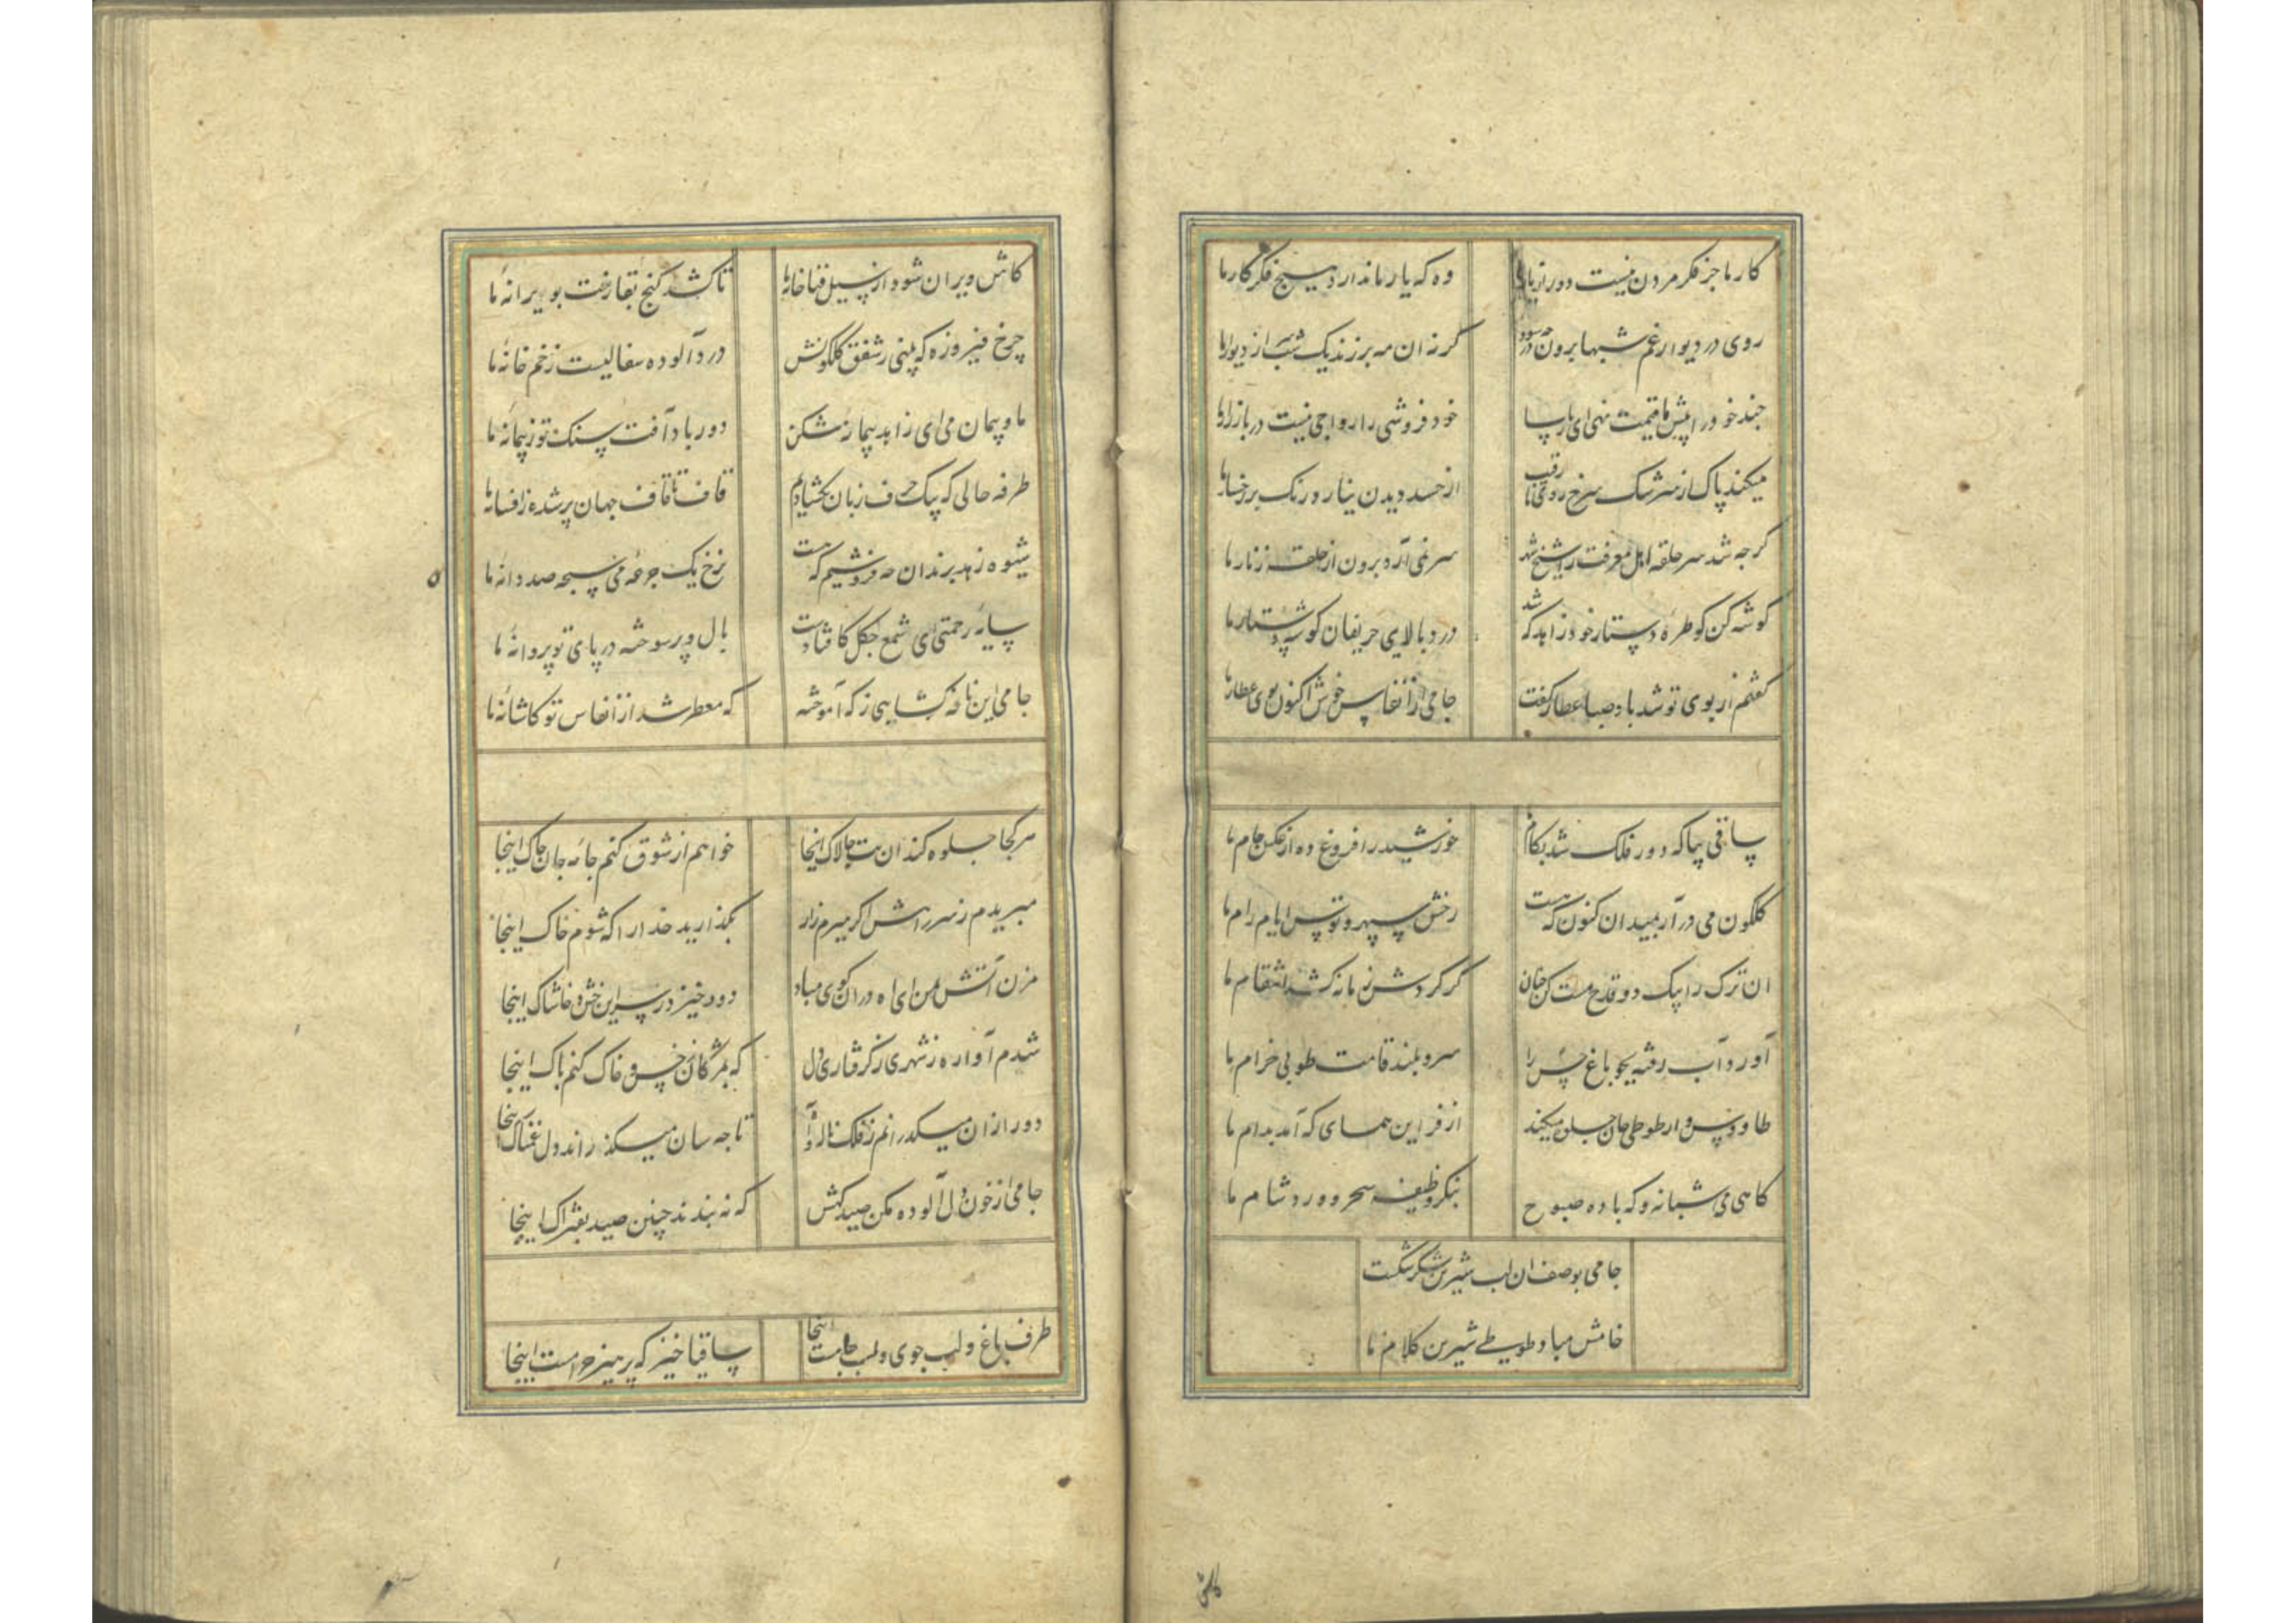 کار ما جز فکر مردن نیست دور از یار ما
وه که یار ما ندارد هیچ فکر کار ما
روی در دیوار غم شبها برون در چه سود
گر نه ان مه برزند یک شب سر از دیوار ما
چند خود را پیش ما قیمت نهی ای پارسا
خود فروشی را رواجی نیست در بازار ما
میکند پاک از سرشک سرخ روی ما رقیب
از حسد دیدن نیارد رنک بر رخسار ما
کر چه شد سر حلقه اهل معرفت را شیخ شهر
سر نمی آرد برون از حلقه زنار ما
کوشه کن کو طره دستار خود زاهد که شد
درد بالای حریفان کوشه دستار ما
کفتم از بوی تو شد باد صبا عطار کفت
جامی از انفاس خوش اکنون توی عطار ما
ساقی بیا که دور فلک شد بکام ما
خورشید را فروغ ده از عکس جام ما
کلکون می در آر بمیدان کنون که هست
رخش سپهر و توسن ایام رام ما
ان ترک را بیک دو قدح مست کن چنان
کز کردش زمانه کشد انتقام ما
آورد آب رفته بجو باغ حسن را
سرو بلند قامت طوبی خرام ما
طاووس وار طوطی جان جلوه میکند
از فر این همای که آمد بدام ما
کاهی می شبانه و که باده صبوح
بنکر وظیفه سحر و ورد شام ما
جامی بوصف ان لب شیرین شکر شکست
خامش مباد طوطی شیرین کلام ما
کاش
کاش ویران شود از سیل فنا خانه ما
تا کشد کنج بقا رخت بویرانه ما
چرخ فیروزه که بینی ز شفق کلکونش
درد آلوده سفالیست ز خمخانه ما
ما و پیمان می ای زاهد پیمانه شکن
دور باد آفت سنک تو ز پیمانه ما
طرفه حالی که بیک حرف زبان نکشادیم
قاف تا قاف جهان پر شده ز افسانه ما
شیوه زهد برندان چه فروشیم که هست
نرخ یک جرعه می سبحه صد دانه ما
سایه رحمتی ای شمع چکل کافتادست
بال و پر سوخته در پای تو پروانه ما
جامی این نافه کشایی ز که آموخته
که معطر شد از انفاس تو کاشانه ما
هر کجا جلوه کند ان بت چالاک انجا
خواهم از شوق کنم جامه جان چاک اینجا
مبریدم ز سر راهش اکر میرم زار
بکذارید خدا را که شوم خاک اینجا
مزن آتش بمن ای اه در ان کوی مباد
دود خیزد ز پس این خس و خاشاک اینجا
شدم آواره ز شهری ز کرفتاری دل
که بمژکان خس و خاک کنم پاک اینجا
دور از ان میکذرانم ز فلک ناله و آه
تا چه سان میکذراند دل غمناک اینجا
جامی از خون دل آلوده مکن صید کهش
که نه بندند چنین صید بفتراک اینجا
طرف باغ و لب جوی و لب جامست اینجا
ساقیا خیز که پرهیز حرامست اینجا